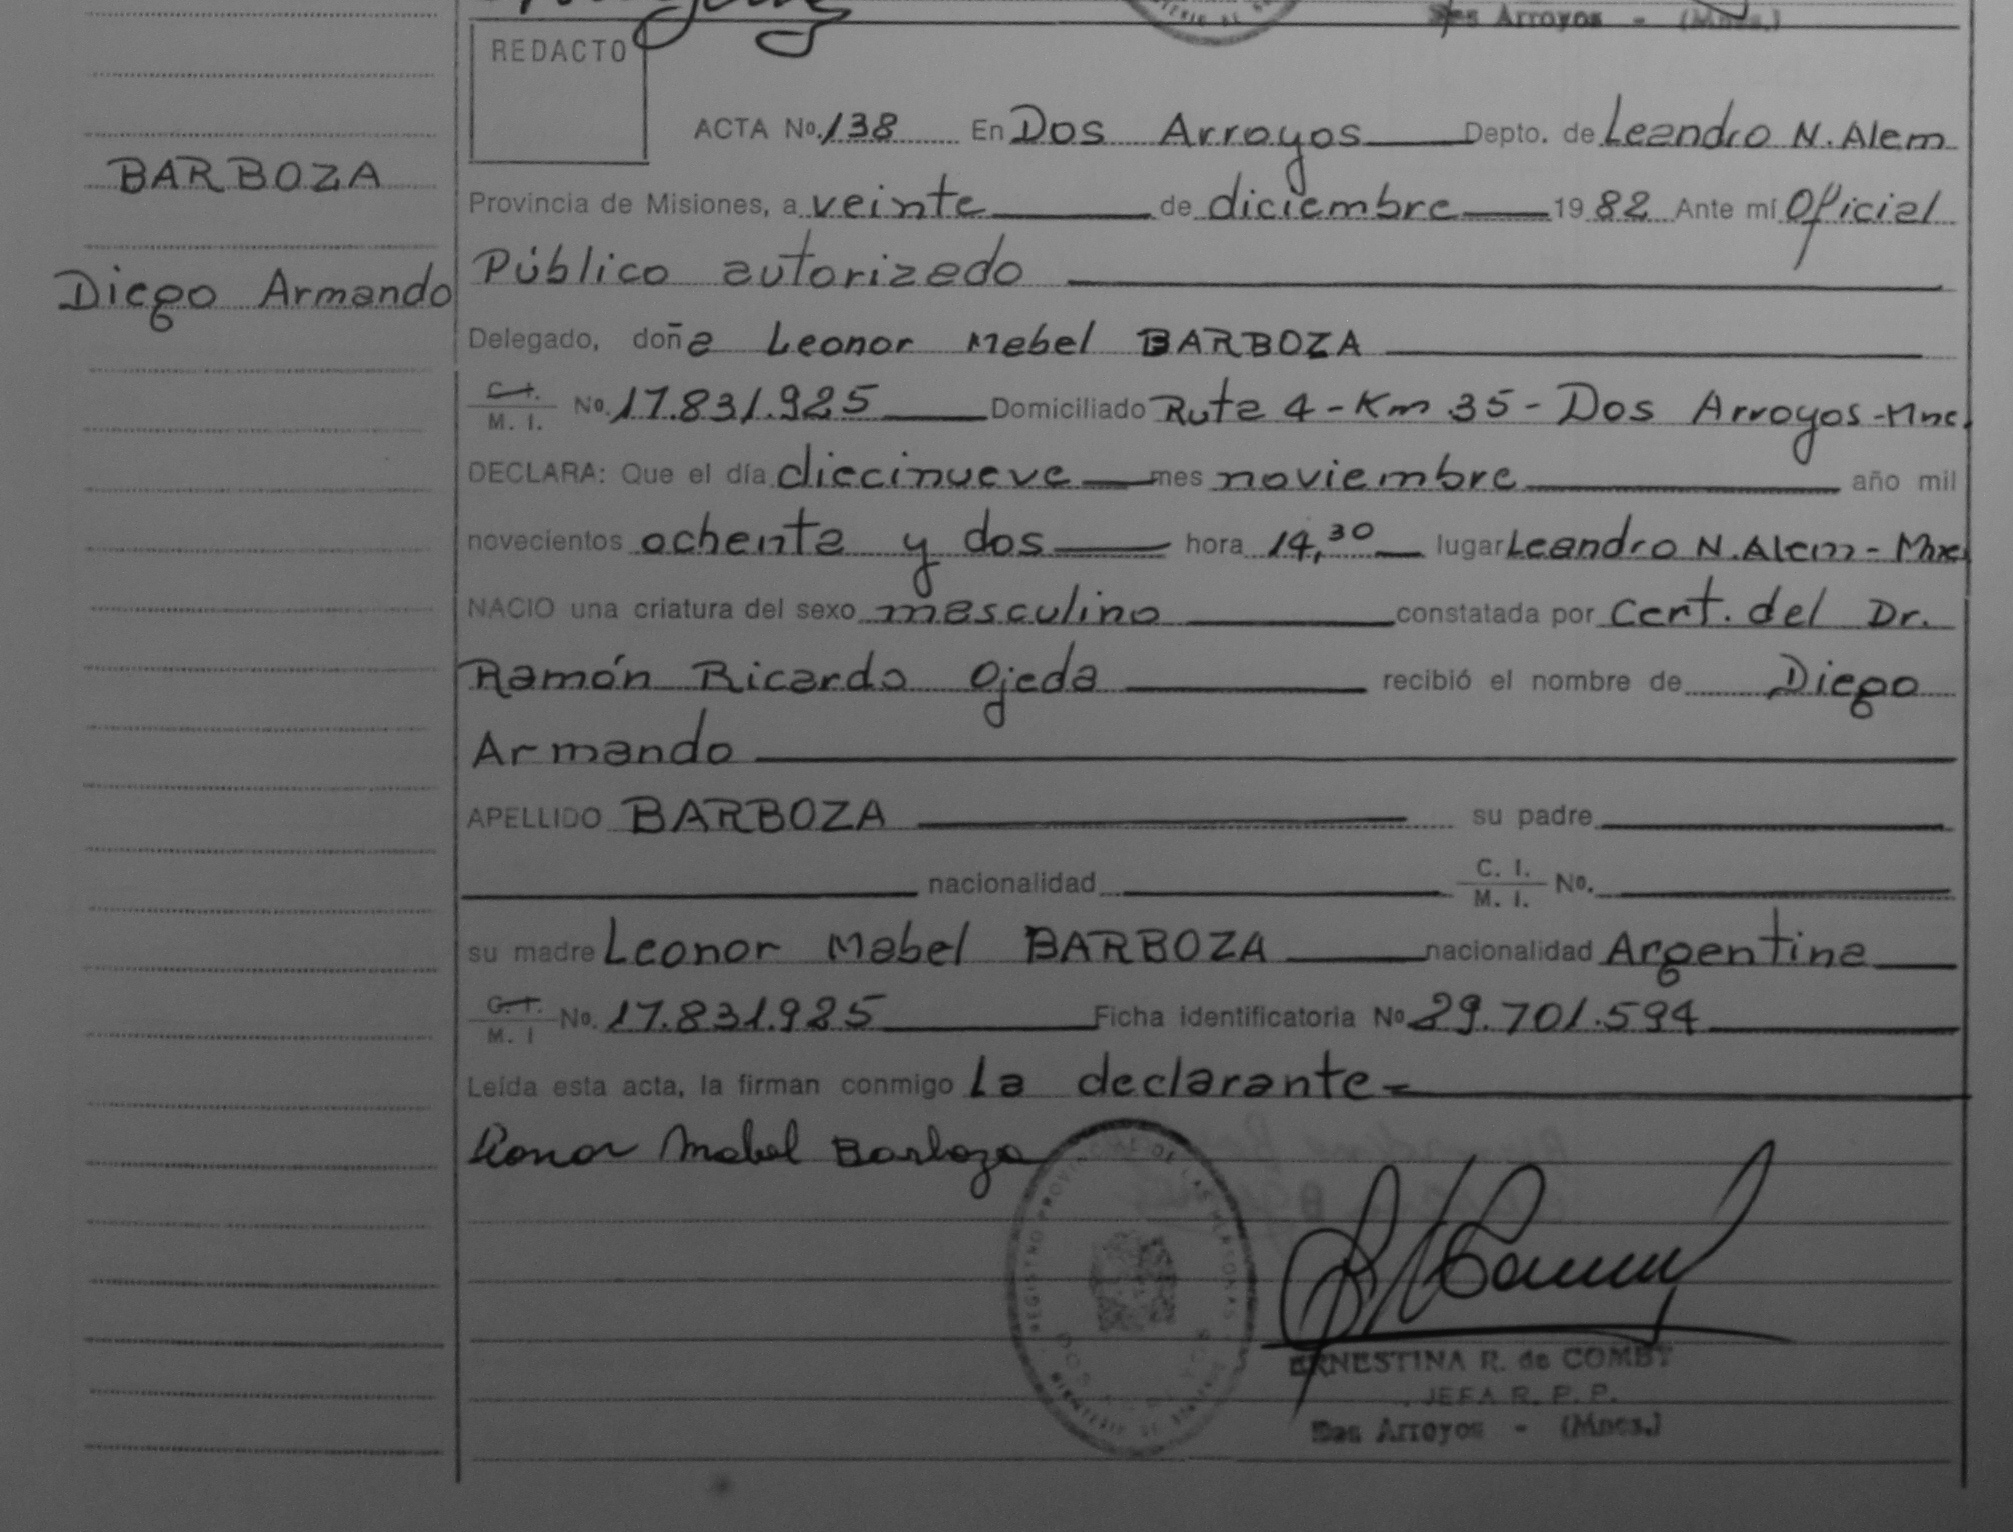 Dos Arroyos - (Mnes.)
REDACTO
ACTA No. 138 En Dos Arroyos Depto. de Leandro N. Alem
BARBOZA
Provincia de Misiones, a veinte de diciembre 1982 Ante mí Oficial
Diego Armando
Público autorizado
Delegado, doña Leonor Mabel BARBOZA
C. I. / M. I. No. 17.831.925 Domiciliado Ruta 4 - Km 35 - Dos Arroyos - Mnes.
DECLARA: Que el día diecinueve mes noviembre año mil
novecientos ochenta y dos hora 14,30 lugar Leandro N. Alem - Mnes
NACIO una criatura del sexo masculino constatada por Cert. del Dr.
Ramón Ricardo Ojeda recibió el nombre de Diego
Armando
APELLIDO BARBOZA su padre
nacionalidad C. I. / M. I. No.
su madre Leonor Mabel BARBOZA nacionalidad Argentina
C. I. / M. I No. 17.831.925 Ficha identificatoria No 29.701.594
Leída esta acta, la firman conmigo La declarante =
Leonor Mabel Barboza
REGISTRO PROVINCIAL DE LAS PERSONAS
DOS ARROYOS
MINISTERIO DE GOBIERNO
ERNESTINA R. de COMBY
JEFA R. P. P.
Dos Arroyos - (Mnes.)